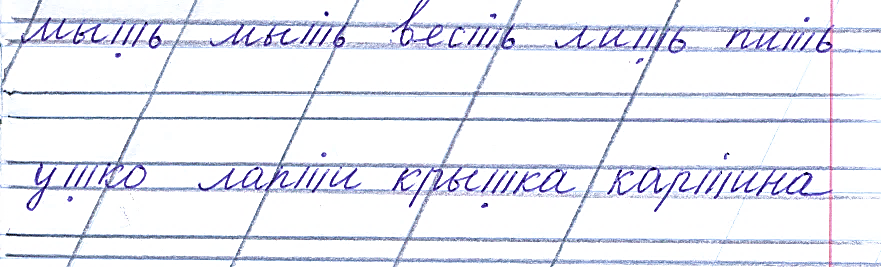 мышь мыть весть лишь пить
ушко лапти крышка картина